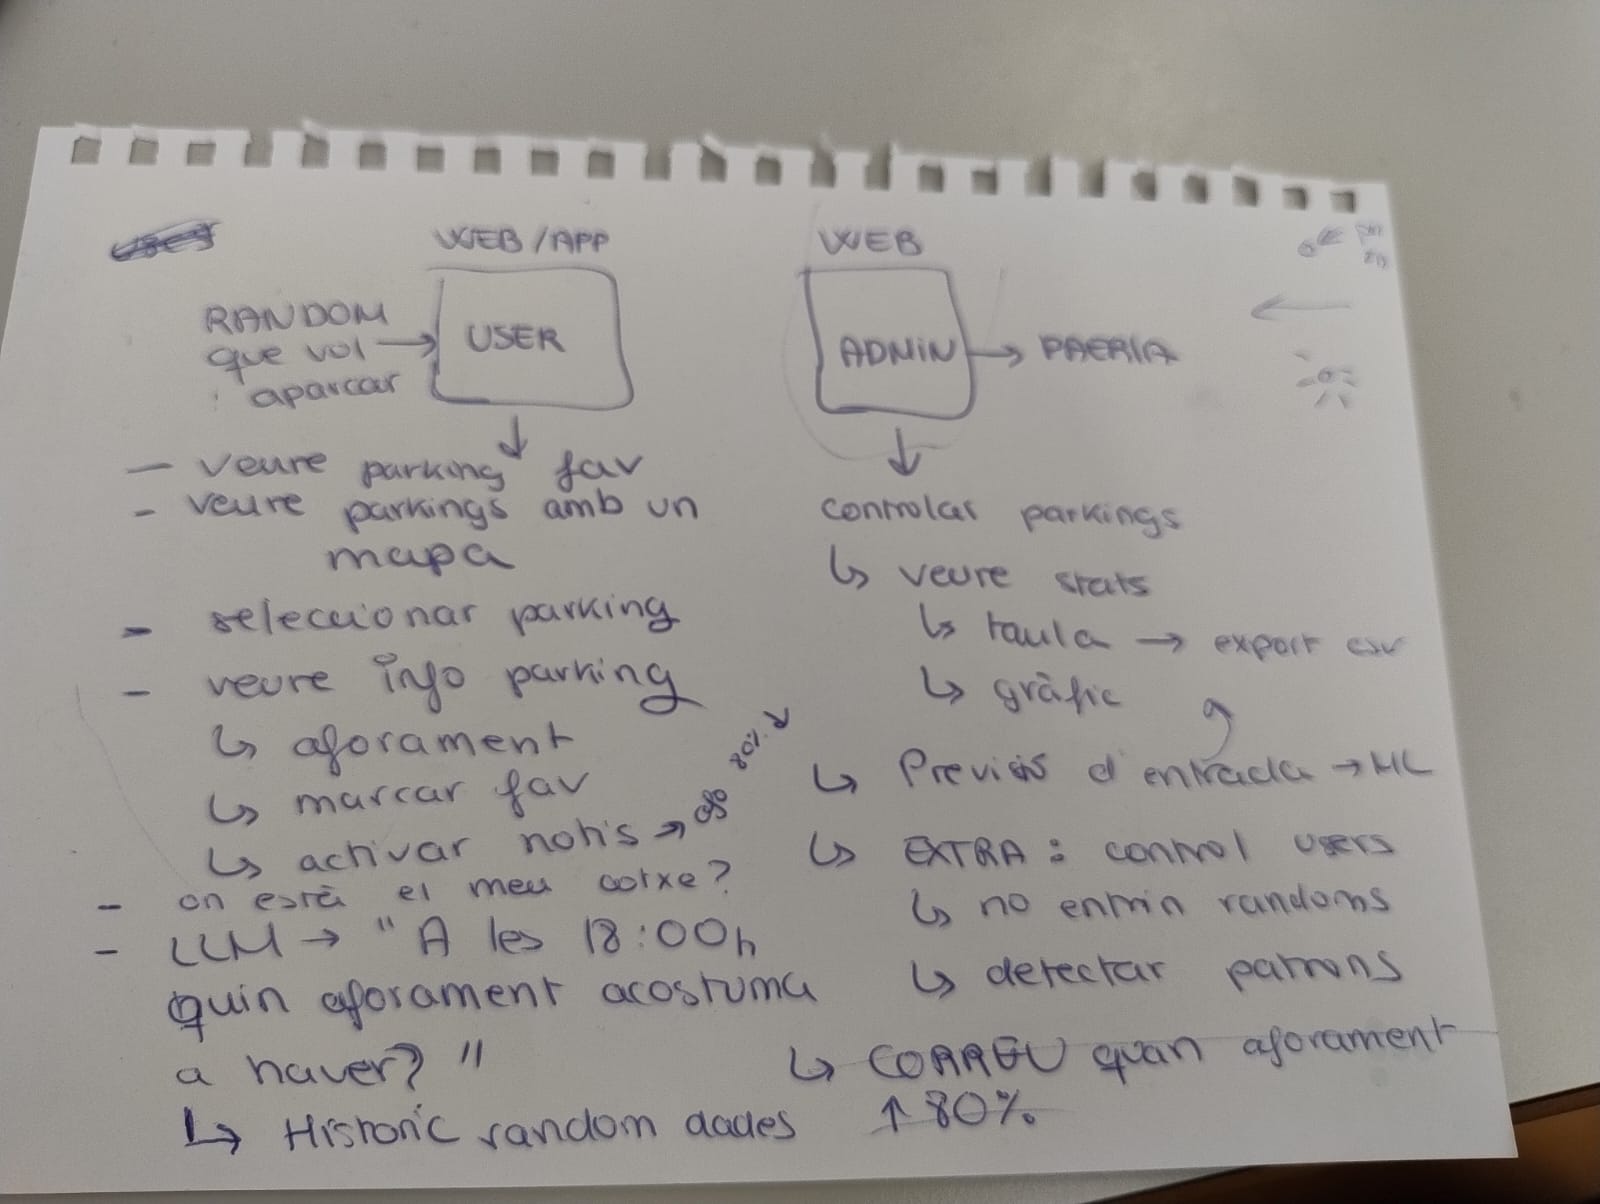 WEB/APP
RANDOM
que vol
aparcar
USER
- veure parking fav
- veure parkings amb un
mapa
- seleccionar parking
- veure info parking
↳ aforament
↳ marcar fav
↳ activar notis → 80%
- on està el meu cotxe?
- LLM → "A les 18:00h
quin aforament acostuma
a haver?"
↳ Històric random dades
WEB
ADMIN → PAERIA
controlar parkings
↳ veure stats
↳ taula → export csv
↳ gràfic
↳ Previsió d'entrada → ML
↳ EXTRA: control users
↳ no entrin randoms
↳ detectar patrons
↳ CORREU quan aforament
↑ 80%